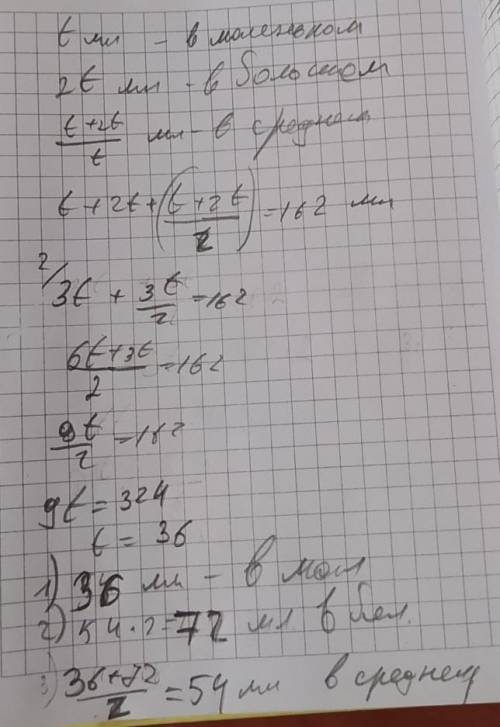 t мл - в маленьком
2t мл - в большом
t+2t/t мл - в среднем
t + 2t + (t+2t/2) = 162 мл
2/ 3t + 3t/2 = 162
6t+3t/2 = 162
9t/2 = 162
9t = 324
t = 36
1) 36 мл - в мал
2) 54·2=72 мл в бол.
3) 36+72/2 = 54 мл в среднем